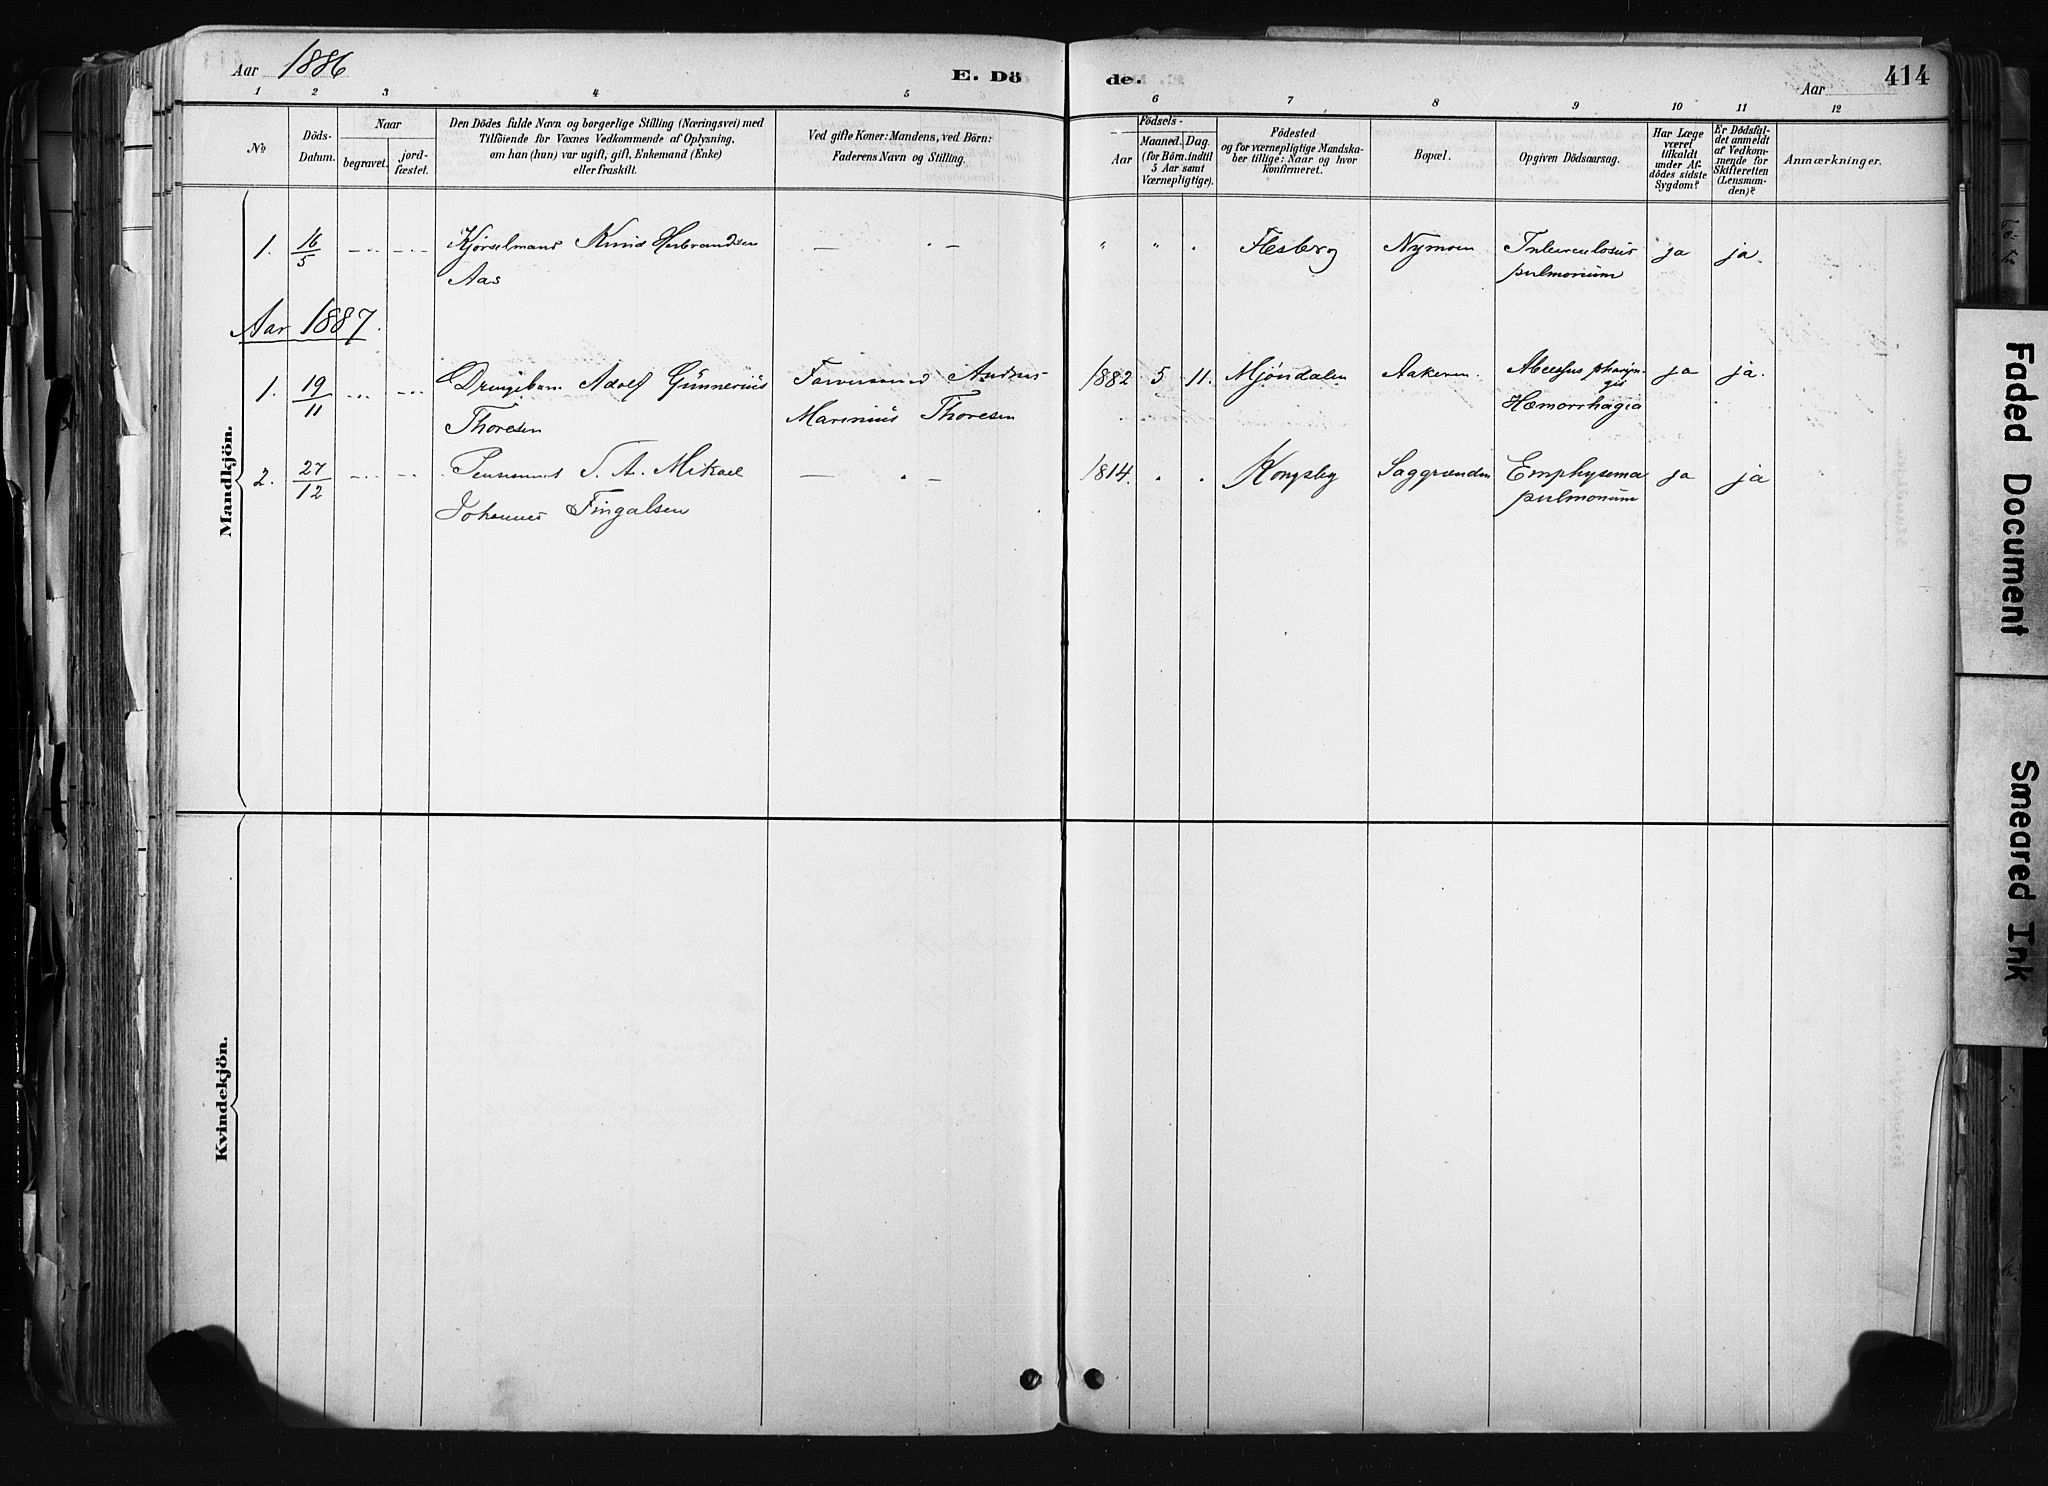 Aar 1886
E. Dö
de.
Aar
414
1 2 3 4 5 6 7 8 9 10 11 12
№
Döds-
Datum.
Naar
begravet.
jord-
fæstet.
Den Dödes fulde Navn og borgerlige Stilling (Næringsvei) med
Tilföiende for Voxnes Vedkommende af Oplysning,
om han (hun) var ugift, gift, Enkemand (Enke)
eller fraskilt.
Ved gifte Koner: Mandens, ved Börn:
Faderens Navn og Stilling.
Födsels-
Aar
Maaned.
Dag.
(for Börn indtil
5 Aar samt
Værnepligtige).
Födested
og for værnepligtige Mandska-
ber tillige: Naar og hvor
konfirmeret.
Bopæl.
Opgiven Dödsaarsag.
Har Læge
været
tilkaldt
under Af-
dödes sidste
Sygdom?
Er Dödsfal-
det anmeldt
af Vedkom-
mende for
Skifteretten
(Lensman-
den)?
Anmærkninger.
Mandkjön.
1. 16/5 Kjørselmand Knud Herbrandsen — " — " " " Flesberg Nymoen Tuberculosus ja ja.
Aas pulmonum
Aar 1887.
1. 19/11 Drengebarn Adolf Gunnerius Andreas 1882 5 11. Mjøndalen Aakeren Abcessus pharyn- ja ja.
gis
Thoresen Marinius Thoresen Hæmorrhagia
2. 27/12 T. A. Mikael — " — 1814. " " Kongsbg Saggrænden Emphysema ja ja
Johannes Fingalsen pulmonum
Kvindekjön.
Faded Document
Smeared Ink